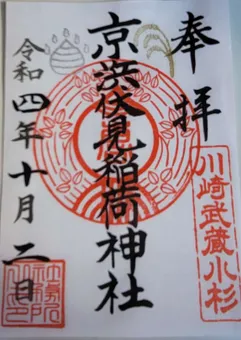 奉拝
川崎武蔵小杉
京濱伏見稲荷神社
令和四年十月二日